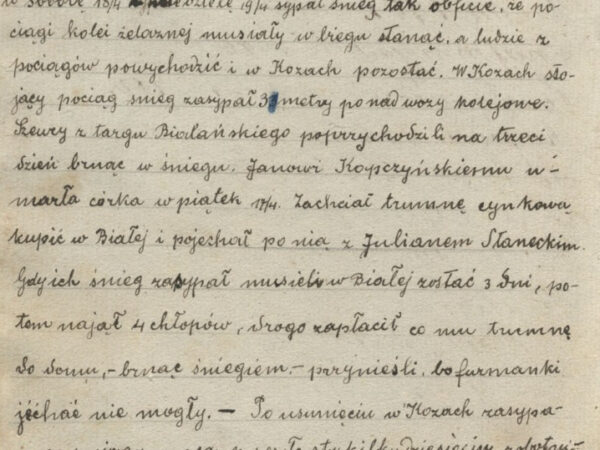 w sobotę 18/4 i niedzielę 19/4 sypał śnieg tak obficie, że po-
ciągi kolei żelaznej musiały w biegu stanąć, a ludzie z
pociągów powychodzić i w Kozach pozostać. W Kozach sto-
jący pociąg śnieg zasypał 3 metry ponad wozy kolejowe.
Szewcy z targu Bialańskiego poprzychodzili na trzeci
dzień brnąc w śniegu. Janowi Kopczyńskiemu u-
marła córka w piątek 17/4. Zachciał trumnę cynkową
kupić w Białej i pojechał po nią z Julianem Staneckim.
Gdy ich śnieg zasypał musieli w Białej zostać 3 dni, po-
tem najął 4 chłopów, drogo zapłacił co mu trumnę
do domu, – brnąc śniegiem, – przynieśli, bo furmanki
jéchać nie mogły. — Po usunięciu w Kozach zasypa-